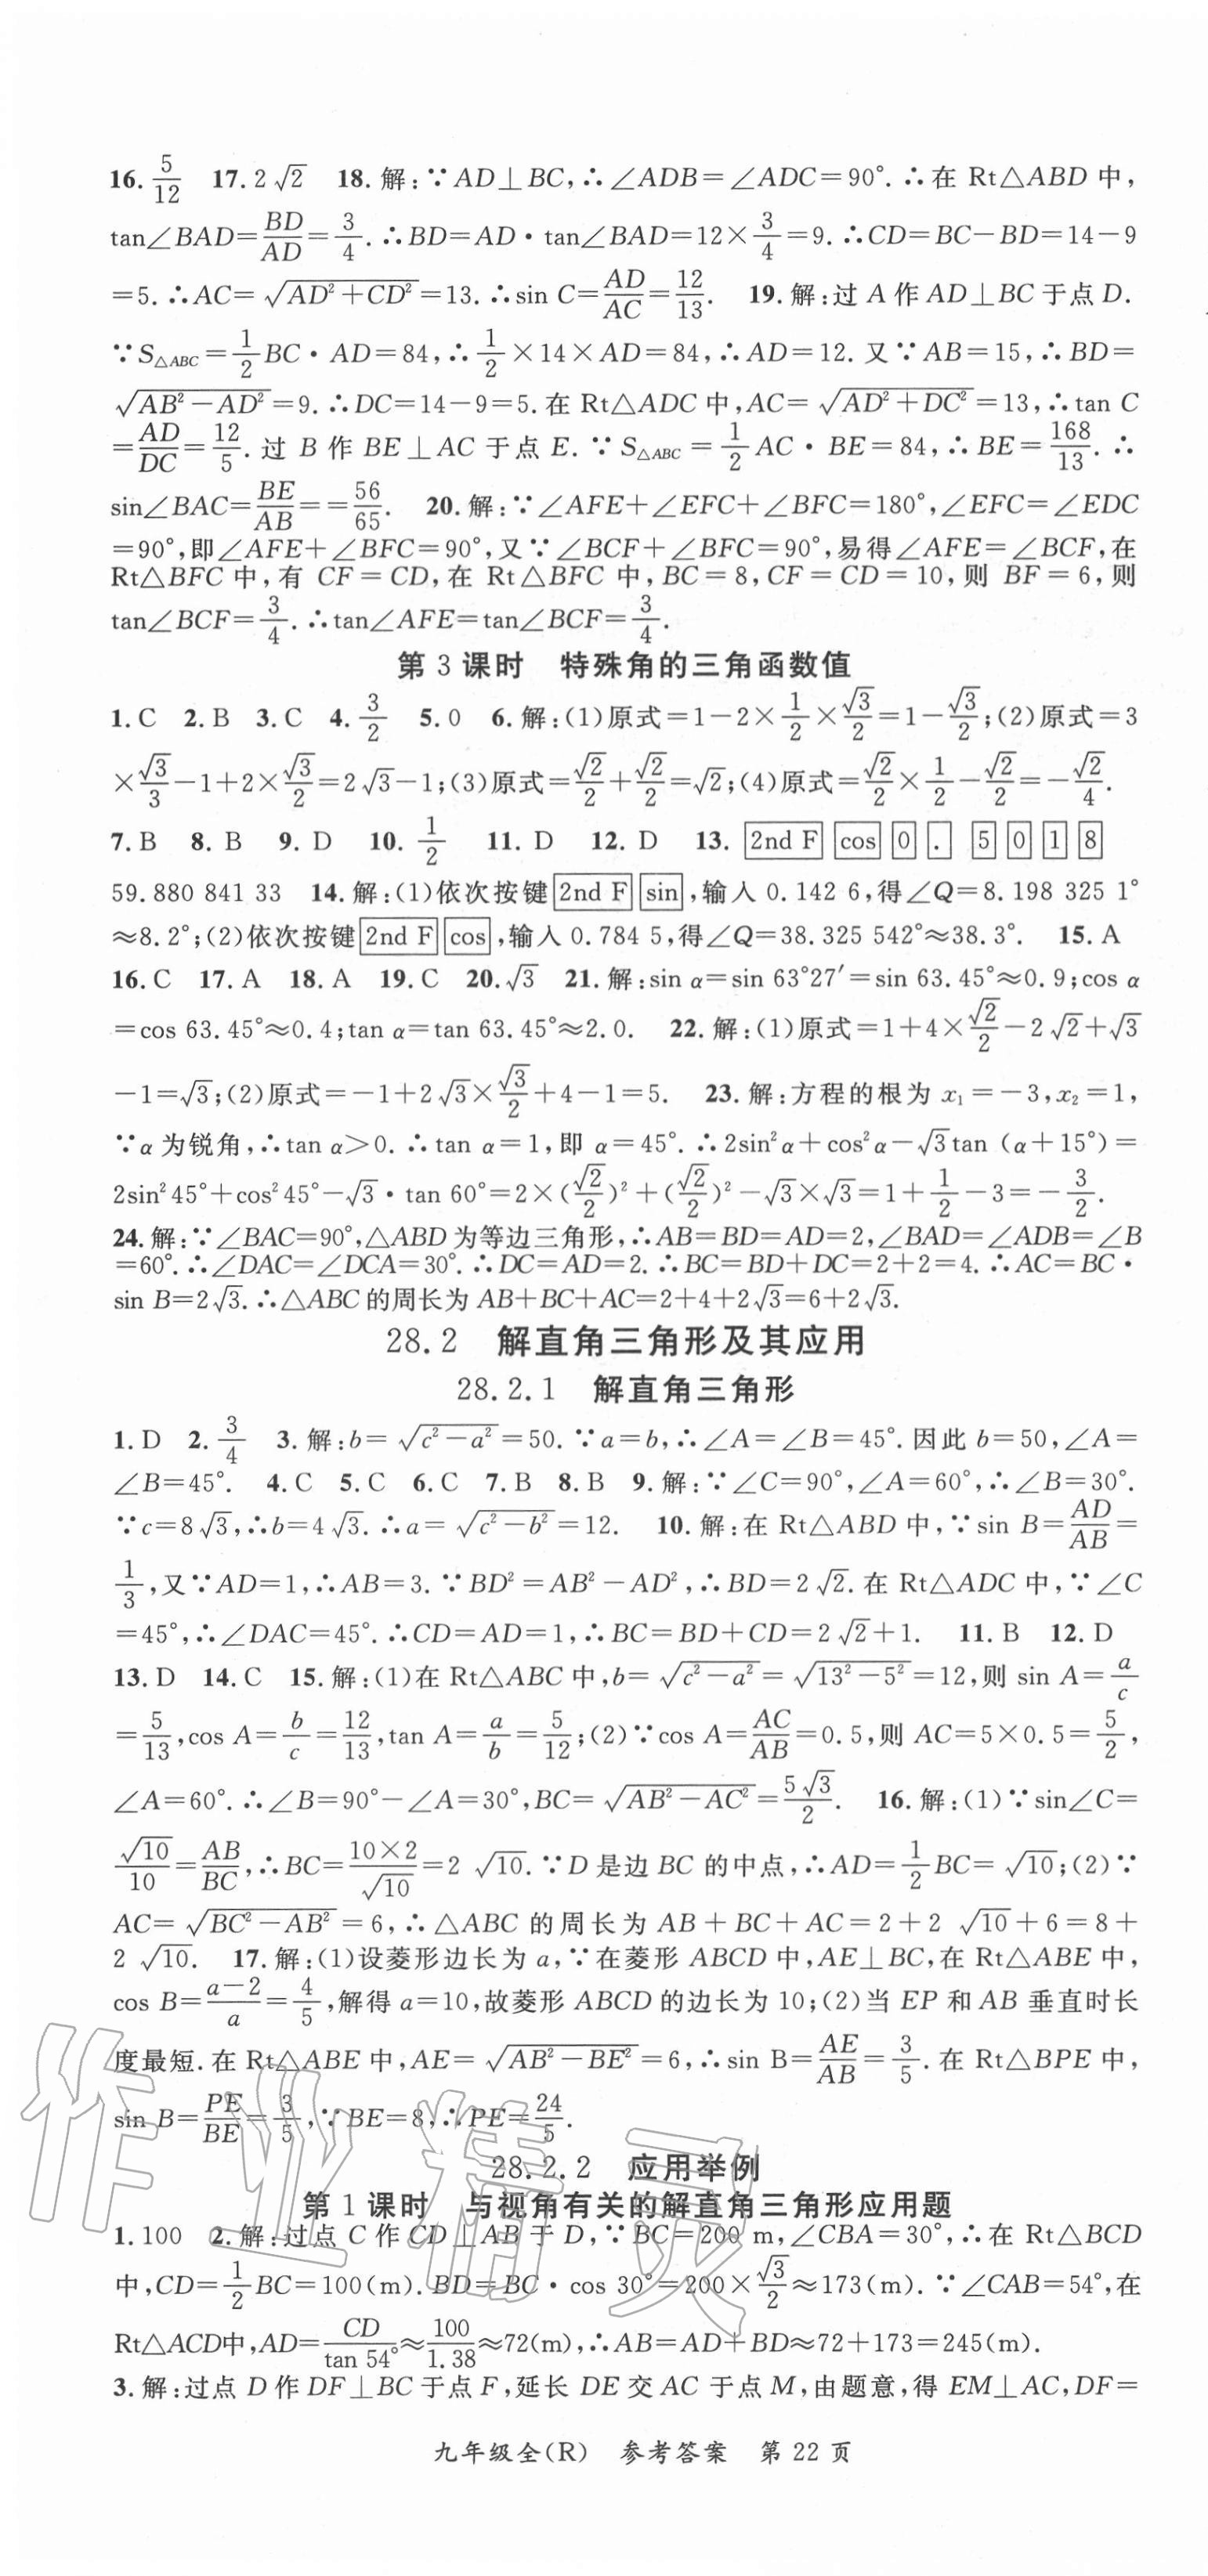 16. 5/12　17. 2√2　18. 解:∵AD⊥BC,∴∠ADB=∠ADC=90°.∴在 Rt△ABD 中,
tan∠BAD=BD/AD=3/4.∴BD=AD·tan∠BAD=12×3/4=9.∴CD=BC-BD=14-9
=5.∴AC=√(AD²+CD²)=13.∴sin C=AD/AC=12/13.　19. 解:过 A 作 AD⊥BC 于点 D.
∵S△ABC=1/2BC·AD=84,∴1/2×14×AD=84,∴AD=12.又∵AB=15,∴BD=
√(AB²-AD²)=9.∴DC=14-9=5.在 Rt△ADC 中,AC=√(AD²+DC²)=13,∴tan C
=AD/DC=12/5.过 B 作 BE⊥AC 于点 E.∵S△ABC=1/2AC·BE=84,∴BE=168/13.∴
sin∠BAC=BE/AB==56/65.　20. 解:∵∠AFE+∠EFC+∠BFC=180°,∠EFC=∠EDC
=90°,即∠AFE+∠BFC=90°,又∵∠BCF+∠BFC=90°,易得∠AFE=∠BCF,在
Rt△BFC 中,有 CF=CD,在 Rt△BFC 中,BC=8,CF=CD=10,则 BF=6,则
tan∠BCF=3/4.∴tan∠AFE=tan∠BCF=3/4.
第 3 课时　特殊角的三角函数值
1. C　2. B　3. C　4. 3/2　5. 0　6. 解:(1)原式=1-2×1/2×√3/2=1-√3/2;(2)原式=3
×√3/3-1+2×√3/2=2√3-1;(3)原式=√2/2+√2/2=√2;(4)原式=√2/2×1/2-√2/2=-√2/4.
7. B　8. B　9. D　10. 1/2　11. D　12. D　13. 2nd F cos 0 . 5 0 1 8
59.880 841 33　14. 解:(1)依次按键 2nd F sin,输入 0.142 6,得∠Q=8.198 325 1°
≈8.2°;(2)依次按键 2nd F cos,输入 0.784 5,得∠Q=38.325 542°≈38.3°.　15. A
16. C　17. A　18. A　19. C　20. √3　21. 解:sin α=sin 63°27′=sin 63.45°≈0.9;cos α
=cos 63.45°≈0.4;tan α=tan 63.45°≈2.0.　22. 解:(1)原式=1+4×√2/2-2√2+√3
-1=√3;(2)原式=-1+2√3×√3/2+4-1=5.　23. 解:方程的根为 x₁=-3,x₂=1,
∵α 为锐角,∴tan α>0.∴tan α=1,即 α=45°.∴2sin²α+cos²α-√3tan (α+15°)=
2sin²45°+cos²45°-√3·tan 60°=2×(√2/2)²+(√2/2)²-√3×√3=1+1/2-3=-3/2.
24. 解:∵∠BAC=90°,△ABD 为等边三角形,∴AB=BD=AD=2,∠BAD=∠ADB=∠B
=60°.∴∠DAC=∠DCA=30°.∴DC=AD=2.∴BC=BD+DC=2+2=4.∴AC=BC·
sin B=2√3.∴△ABC 的周长为 AB+BC+AC=2+4+2√3=6+2√3.
28.2　解直角三角形及其应用
28.2.1　解直角三角形
1. D　2. 3/4　3. 解:b=√(c²-a²)=50.∵a=b,∴∠A=∠B=45°.因此 b=50,∠A=
∠B=45°.　4. C　5. C　6. C　7. B　8. B　9. 解:∵∠C=90°,∠A=60°,∴∠B=30°.
∵c=8√3,∴b=4√3.∴a=√(c²-b²)=12.　10. 解:在 Rt△ABD 中,∵sin B=AD/AB=
1/3,又∵AD=1,∴AB=3.∵BD²=AB²-AD²,∴BD=2√2.在 Rt△ADC 中,∵∠C
=45°,∴∠DAC=45°.∴CD=AD=1,∴BC=BD+CD=2√2+1.　11. B　12. D
13. D　14. C　15. 解:(1)在 Rt△ABC 中,b=√(c²-a²)=√(13²-5²)=12,则 sin A=a/c
=5/13,cos A=b/c=12/13,tan A=a/b=5/12;(2)∵cos A=AC/AB=0.5,则 AC=5×0.5=5/2,
∠A=60°.∴∠B=90°-∠A=30°,BC=√(AB²-AC²)=5√3/2.　16. 解:(1)∵sin∠C=
√10/10=AB/BC,∴BC=10×2/√10=2√10.∵D 是边 BC 的中点,∴AD=1/2BC=√10;(2)∵
AC=√(BC²-AB²)=6,∴△ABC 的周长为 AB+BC+AC=2+2√10+6=8+
2√10.　17. 解:(1)设菱形边长为 a,∵在菱形 ABCD 中,AE⊥BC,在 Rt△ABE 中,
cos B=(a-2)/a=4/5,解得 a=10,故菱形 ABCD 的边长为 10;(2)当 EP 和 AB 垂直时长
度最短.在 Rt△ABE 中,AE=√(AB²-BE²)=6,∴sin B=AE/AB=3/5.在 Rt△BPE 中,
sin B=PE/BE=3/5,∵BE=8,∴PE=24/5.
28.2.2　应用举例
第 1 课时　与视角有关的解直角三角形应用题
1. 100　2. 解:过点 C 作 CD⊥AB 于 D,∵BC=200 m,∠CBA=30°,∴在 Rt△BCD
中,CD=1/2BC=100(m).BD=BC·cos 30°=200×√3/2≈173(m).∵∠CAB=54°,在
Rt△ACD中,AD=CD/tan 54°≈100/1.38≈72(m),∴AB=AD+BD≈72+173=245(m).
3. 解:过点 D 作 DF⊥BC 于点 F,延长 DE 交 AC 于点 M,由题意,得 EM⊥AC,DF=
九年级全(R)　参考答案　第 22 页
作业精灵